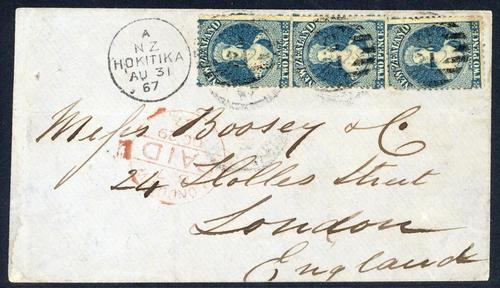 A
NZ
HOKITIKA
AU 31
67
NEW ZEALAND
TWO PENCE
NEW ZEALAND
TWO PENCE
NEW ZEALAND
TWO PENCE
PAID
Messs Boosey & C.
24 Holles Street
London
England